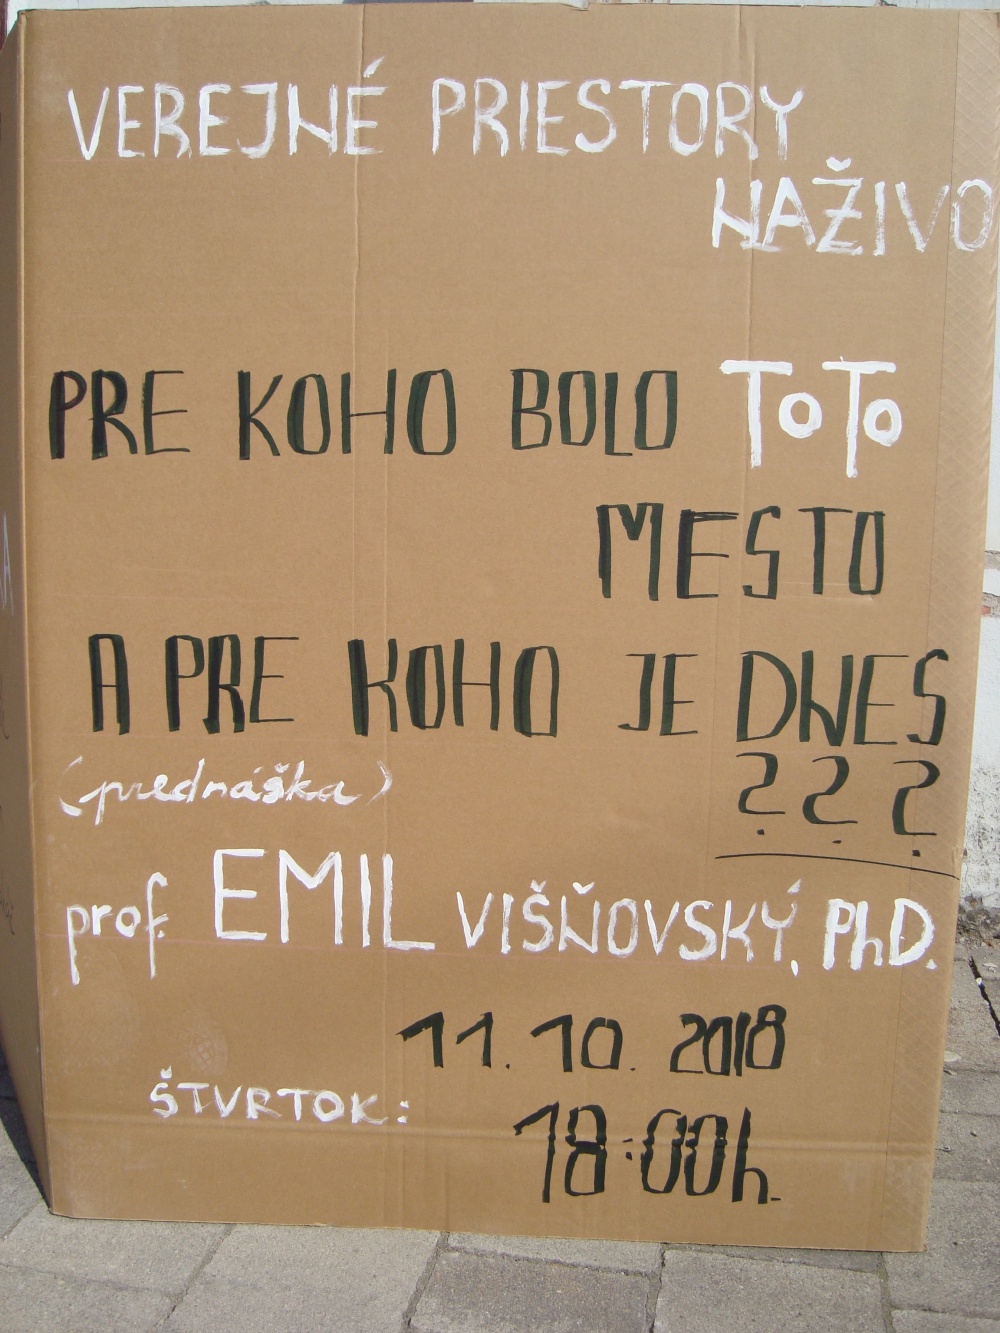 VEREJNÉ PRIESTORY
NAŽIVO
PRE KOHO BOLO TOTO
MESTO
A PRE KOHO JE DNES
???
(prednáška)
prof. EMIL VIŠŇOVSKÝ, PhD.
11. 10. 2018
ŠTVRTOK:
18:00h.